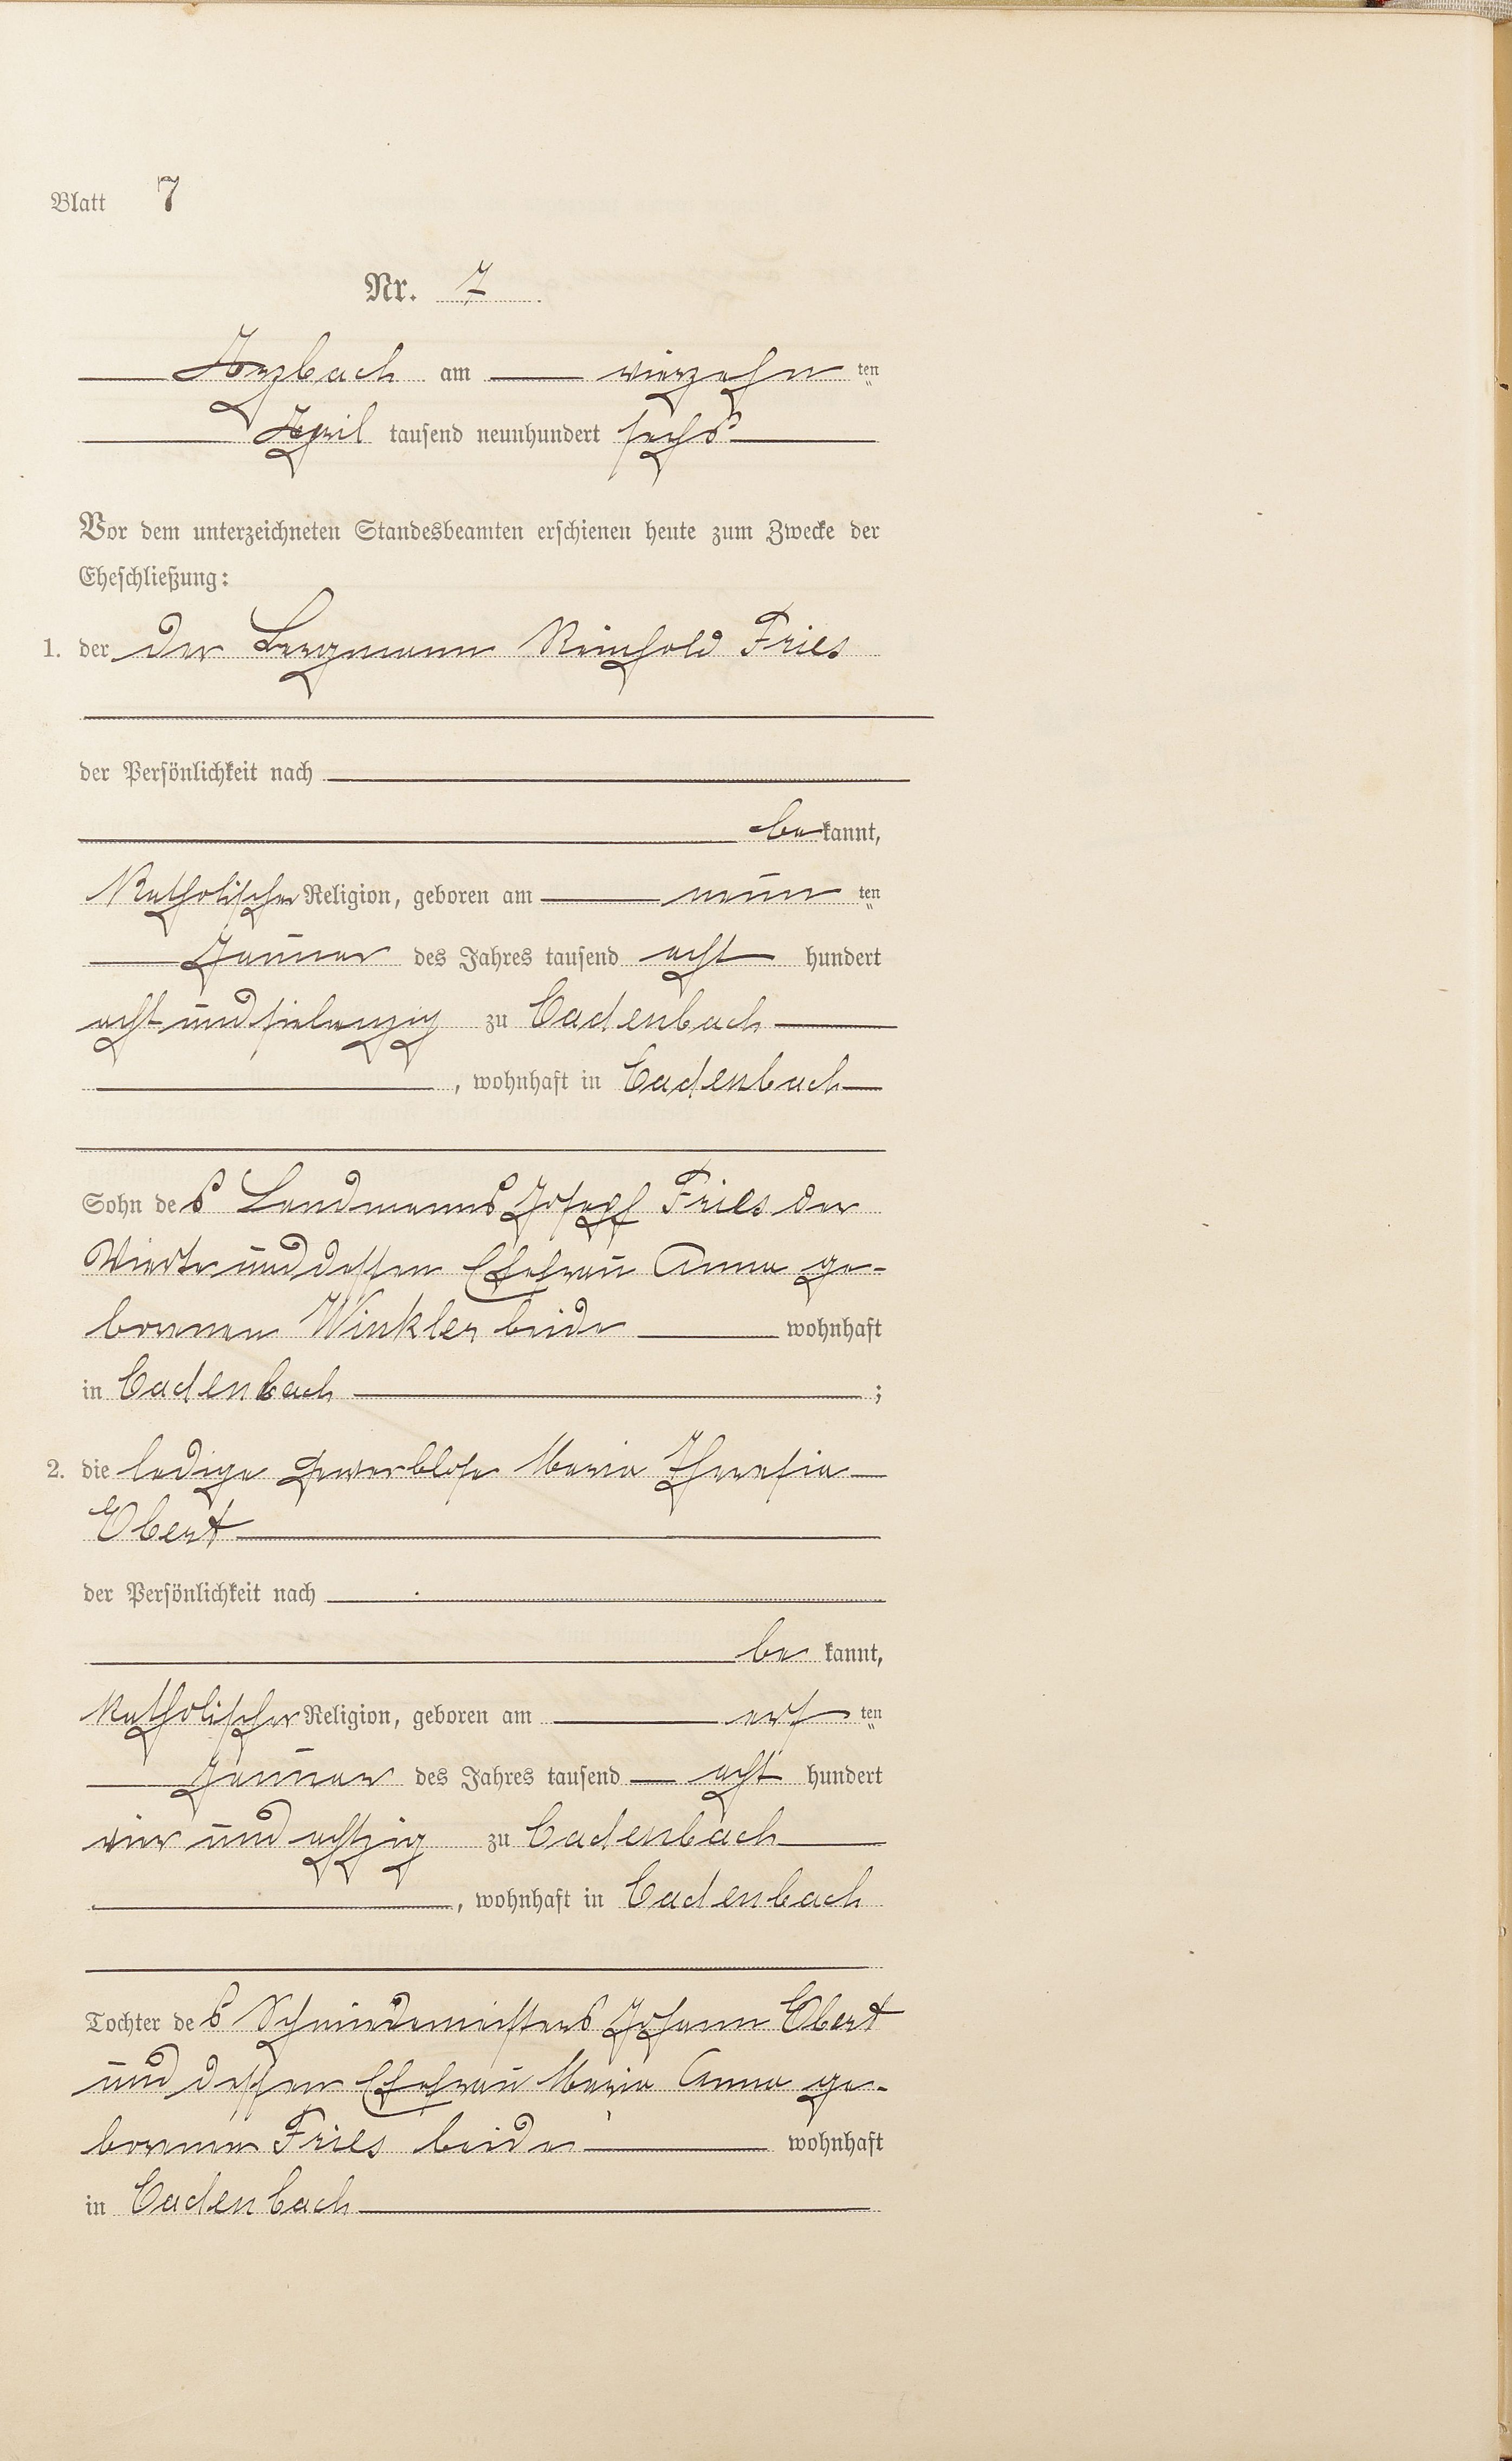 Blatt 7
Nr. 7
Arzbach am vierzehn ten
April tausend neunhundert sechs
Vor dem unterzeichneten Standesbeamten erschienen heute zum Zwecke der
Eheschließung:
1. der der Bergmann Reinhold Fries
der Persönlichkeit nach
be kannt,
Katholischer Religion, geboren am neun ten
Januar des Jahres tausend acht hundert
acht und siebenzig zu Cadenbach
, wohnhaft in Cadenbach
Sohn des Landmanns Josef Fries der
Vierte und dessen Ehefrau Anna ge-
borenen Winkler beide wohnhaft
in Cadenbach ;
2. die ledige gewerblose Maria Theresia
Ebert
der Persönlichkeit nach
be kannt,
katholischer Religion, geboren am ten
Januar des Jahres tausend acht hundert
vier und achtzig zu Cadenbach
, wohnhaft in Cadenbach
Tochter des Schmiedemeisters Johann Ebert
und dessen Ehefrau Maria Anna ge-
borenen Fries beide wohnhaft
in Cadenbach